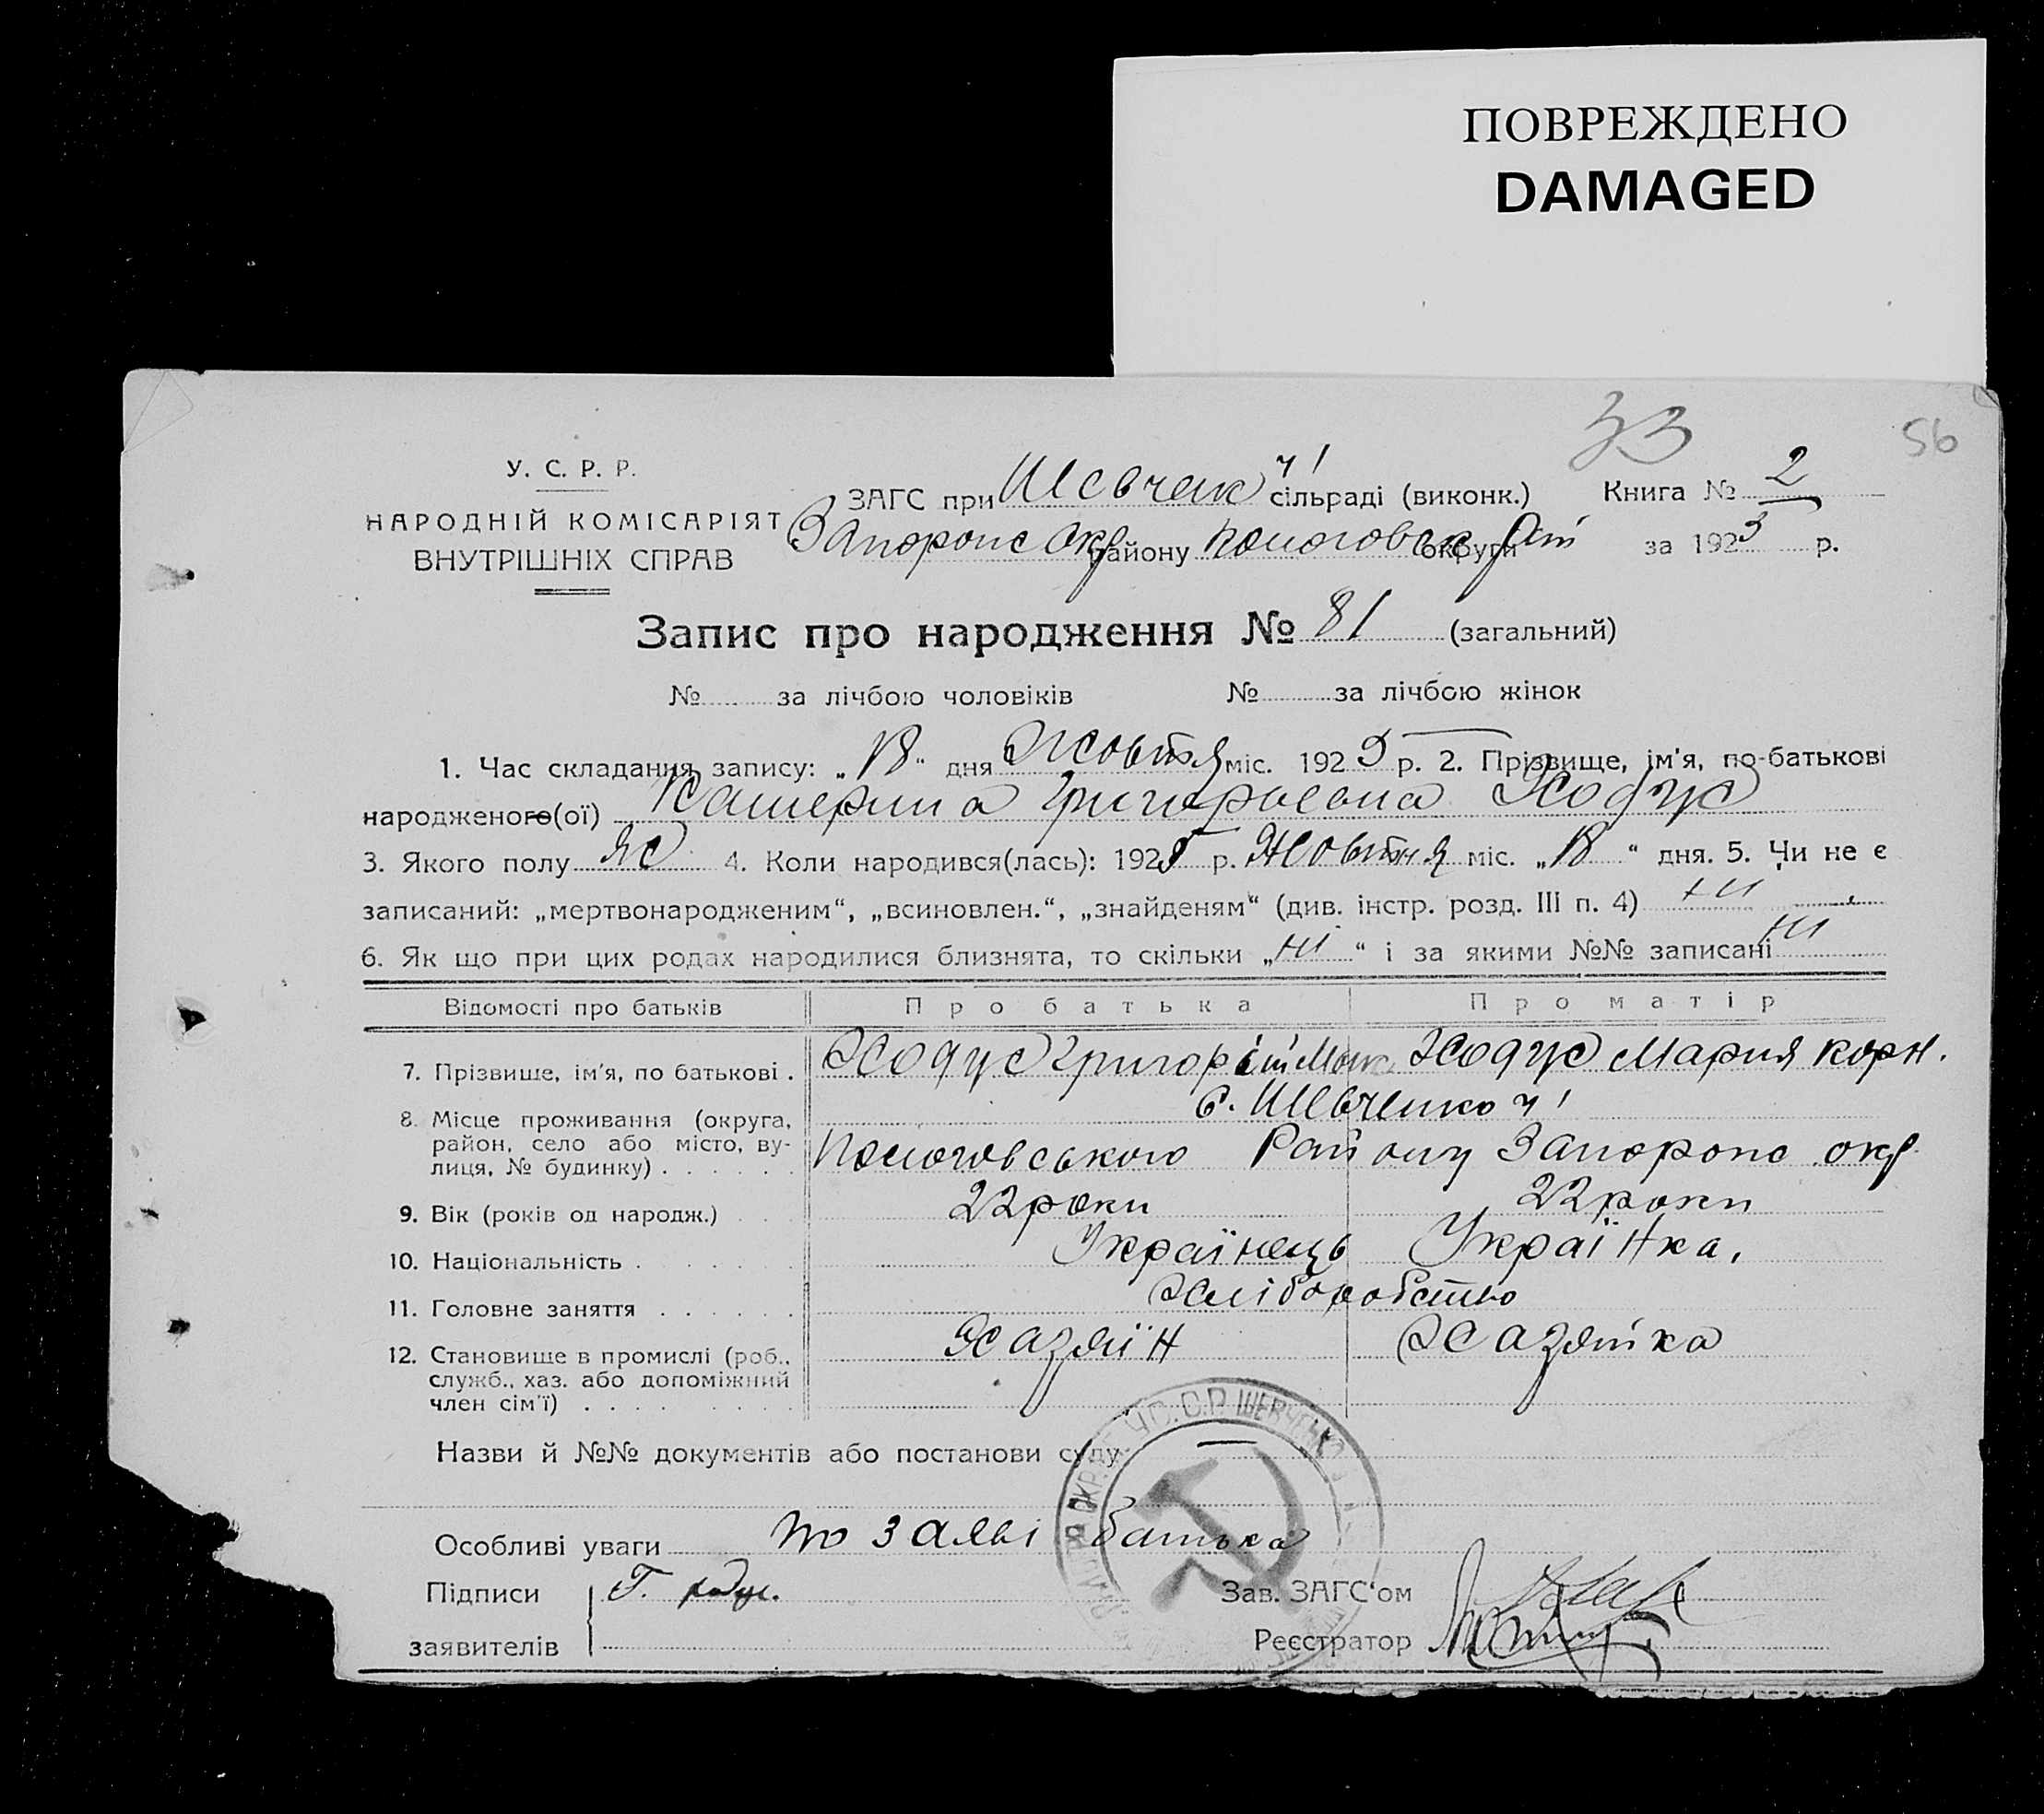 ПОВРЕЖДЕНО
DAMAGED
33
56
У. С. Р. Р.
НАРОДНІЙ КОМІСАРІЯТ
ВНУТРІШНІХ СПРАВ
ЗАГС при Шевченк ч1 сільраді (виконк.) Книга № 2
Запорож окр району Пологовск округи Рай за 1925 р.
Запис про народження № 81 (загальний)
№ за лічбою чоловіків № за лічбою жінок
1. Час складання запису: „18“ дня Жовтня міс. 1925 р. 2. Прізвище, ім'я, по-батькові
народженого(ої) Катерина Григорьевна Ходус
3. Якого полу Ж 4. Коли народився(лась): 1925 р. Жовтня міс. „18“ дня. 5. Чи не є
записаний: „мертвонародженим“, „всиновлен.“, „знайденям“ (див. інстр. розд. III п. 4) ні
6. Як що при цих родах народилися близнята, то скільки „ні“ і за якими №№ записані ні
Відомості про батьків Про батька Про матір
7. Прізвище, ім'я, по батькові . Ходус Григорій Ходус Мария Корн.
8. Місце проживання (округа, с. Шевченко ч1
район, село або місто, ву-
лиця, № будинку) . . . . . . Пологовського Району Запорож окр
9. Вік (років од народж.) 22 роки 22 роки
10. Національність . Українець Українка,
11. Головне заняття . . . . . . Хліборобство
12. Становище в промислі (роб., Хазяїн Хазяйка
служб., хаз. або допоміжний
член сім'ї) . . . .
Назви й №№ документів або постанови суду
Особливі уваги по заяві батька
Підписи Г. Ходус. Зав. ЗАГС'ом
заявителів Реєстратор